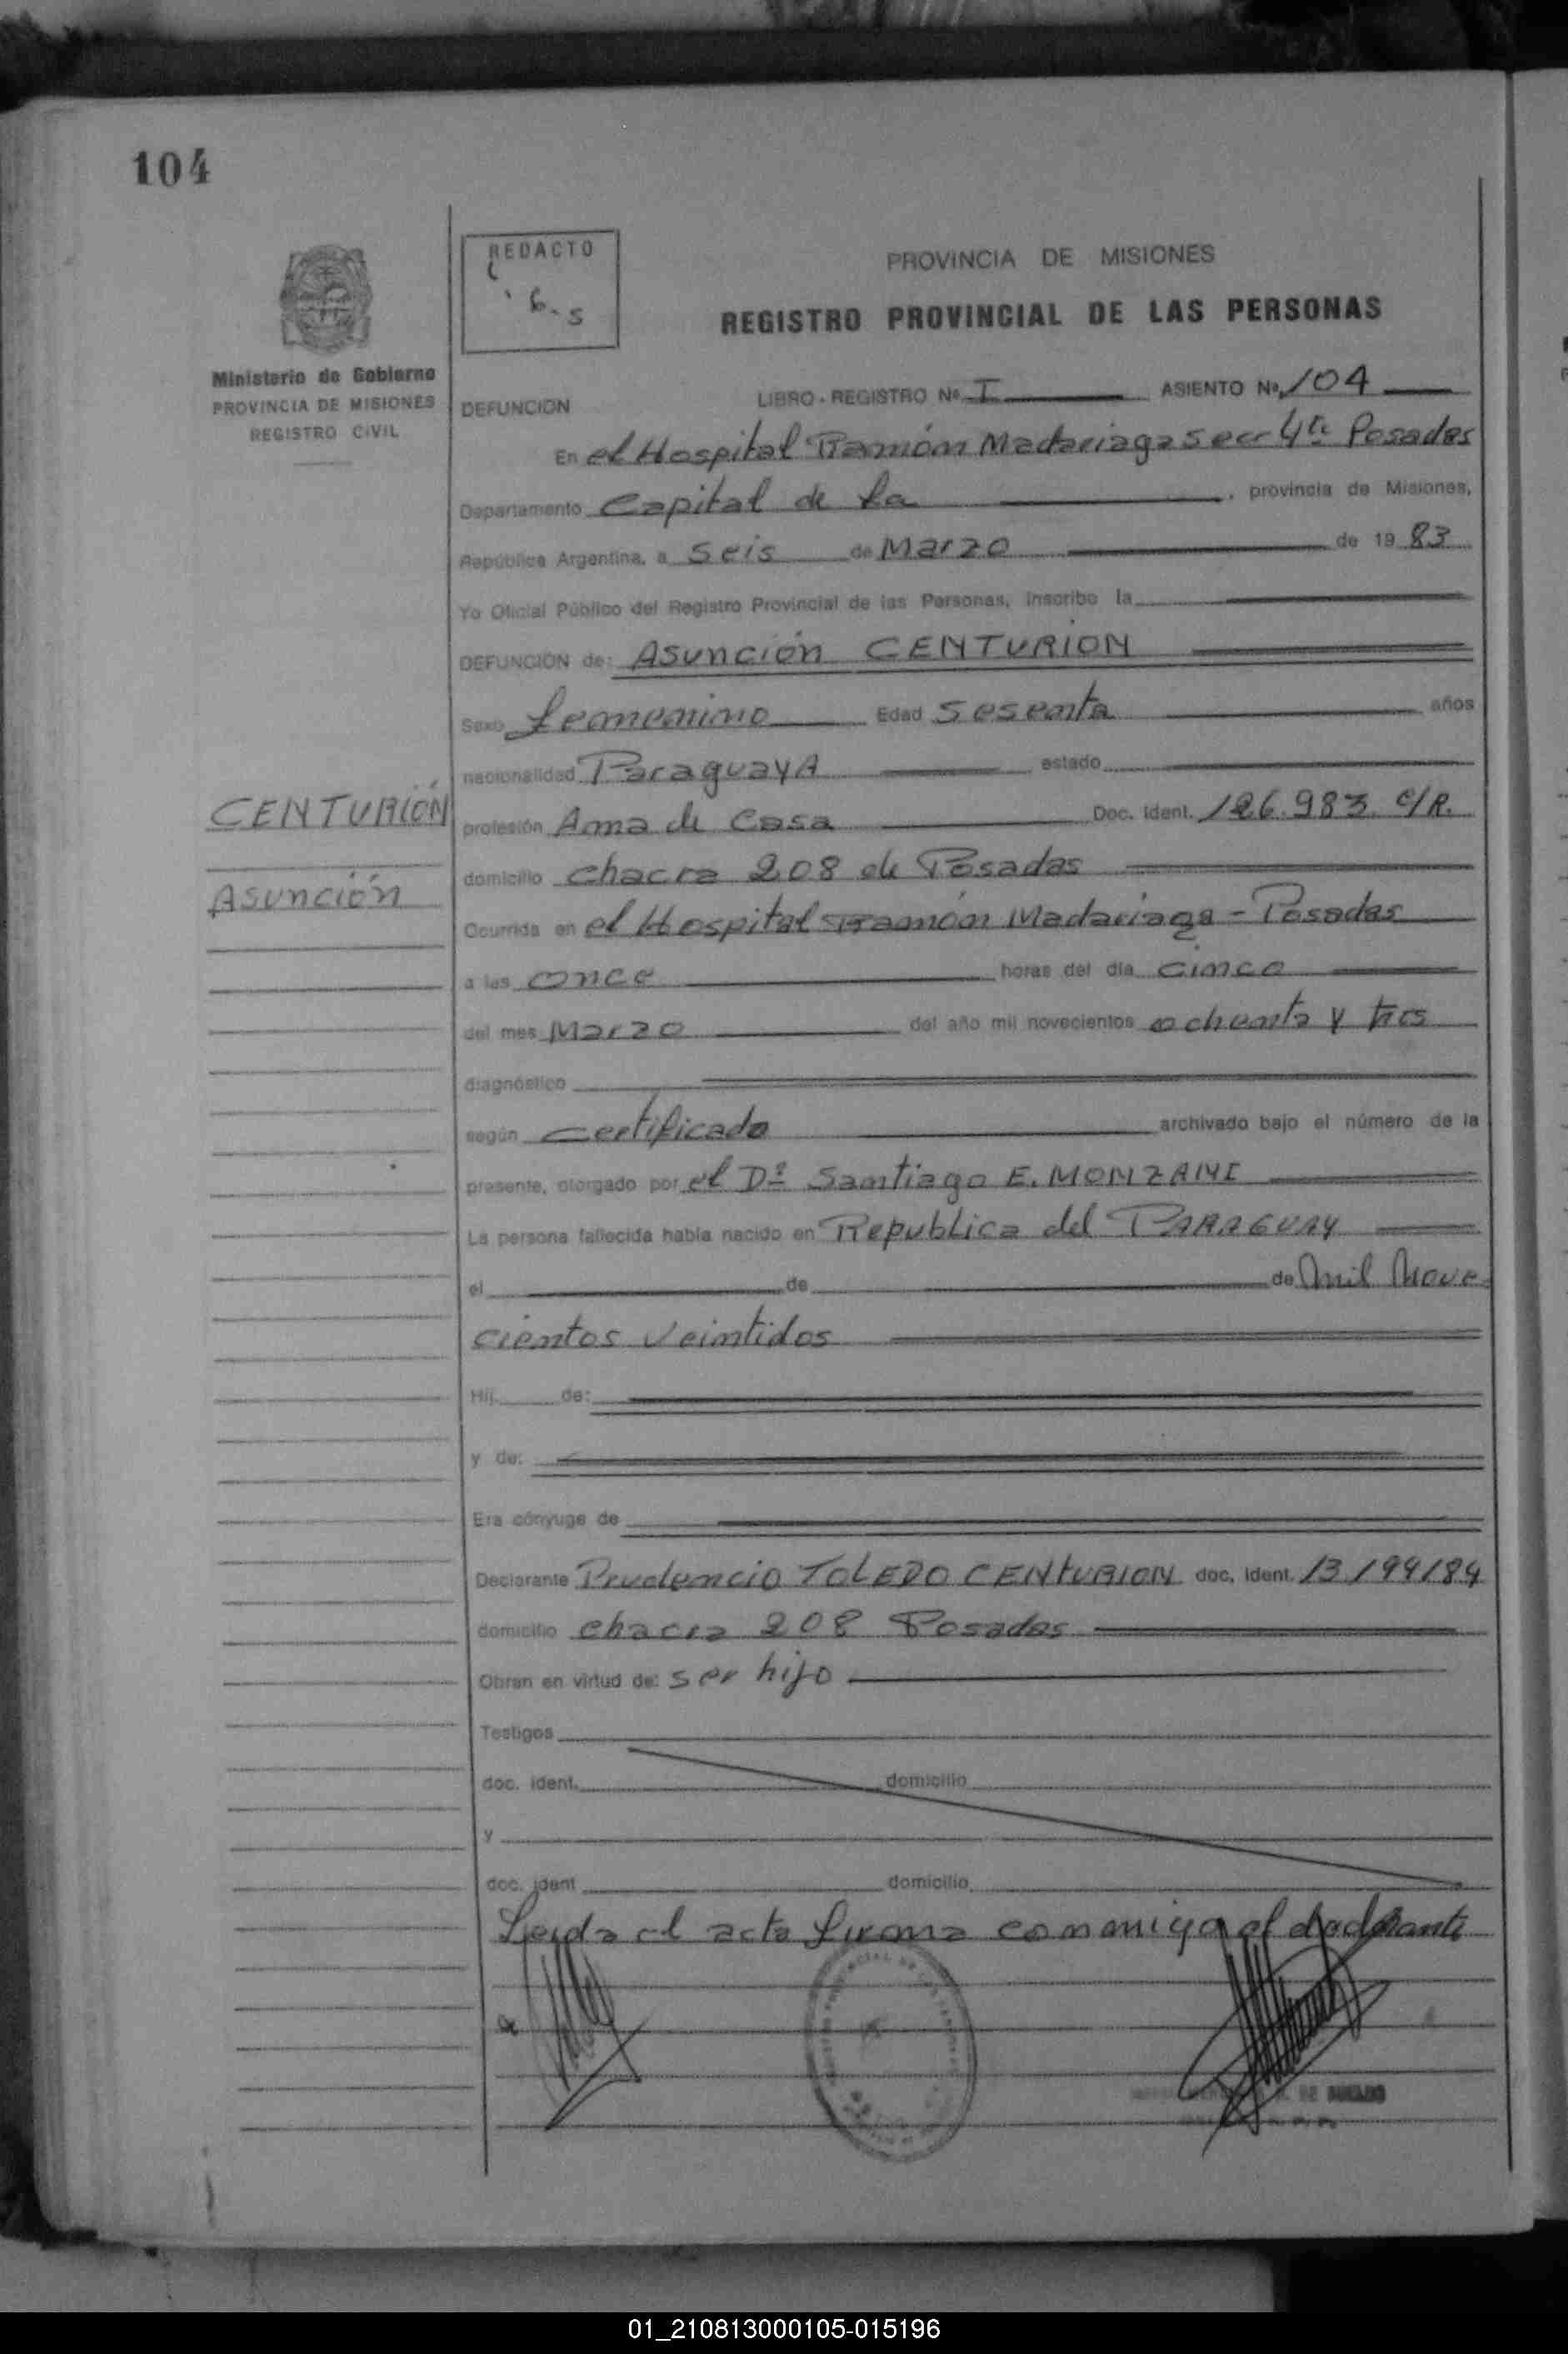 104
REDACTO
6-5
PROVINCIA DE MISIONES
REGISTRO PROVINCIAL DE LAS PERSONAS
Ministerio de Gobierno
PROVINCIA DE MISIONES
REGISTRO CIVIL
DEFUNCION LIBRO - REGISTRO Nº I ASIENTO Nº 104
En el Hospital Ramón Madariaga Secc 4ta Posadas
Departamento Capital de la , provincia de Misiones,
República Argentina, a Seis de Marzo de 19 83
Yo Oficial Público del Registro Provincial de las Personas, inscribo la
DEFUNCION de: Asunción CENTURION
Sexo femenino Edad Sesenta años
nacionalidad ParaguayA estado
CENTURIÓN
Asunción
profesión Ama de Casa Doc. Ident. 126.983 C/R.
domicilio chacra 208 de Posadas
Ocurrida en el Hospital Ramón Madariaga - Posadas
a las once horas del día cinco
del mes Marzo del año mil novecientos ochenta y tres
diagnóstico
según certificado archivado bajo el número de la
presente, otorgado por el Dr Santiago E. MONZANI
La persona fallecida había nacido en Republica del PARAGUAY
el de de mil nove
cientos veintidos
Hij de:
y de:
Era cónyuge de
Declarante Prudencio TOLEDO CENTURION doc. ident. 13/94/84
domicilio chacra 208 Posadas
Obran en virtud de: ser hijo
Testigos
doc. ident. domicilio
y
doc. ident domicilio
Leida el acta firma conmigo el declarante
01_210813000105-015196